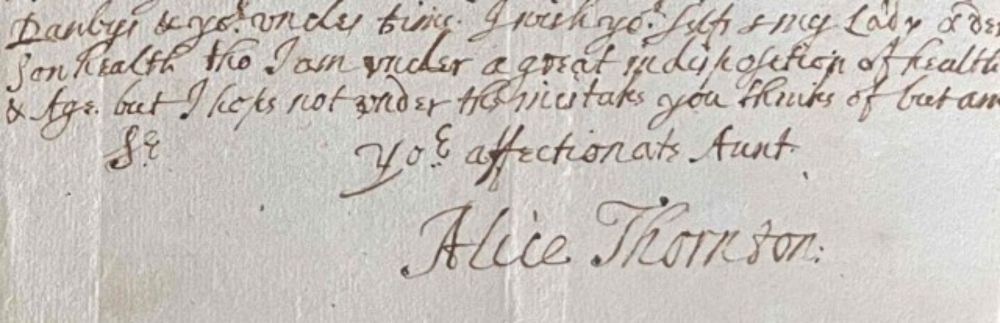 Danbys & yor. vncles time. I wish yor. self & my Lady & der
son health tho I am vnder a great indisposetion of health
& Age. but I hope not vnder the mistake you thinke of but am
Sr. yor affectionate Aunt.
Alice Thornton: